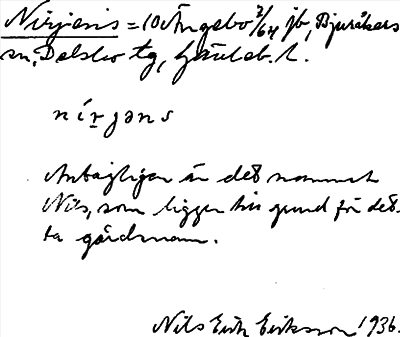 Nirjens = 10 Ängebo 2/64 jb, Bjuråkers
sn, Delsbo tg, Gävleb. l.
nírgəns
Antagligen är det namnet
Nils, som ligger till grund för det-
ta gårdsnamn.
Nils Erik Eriksson 1936.